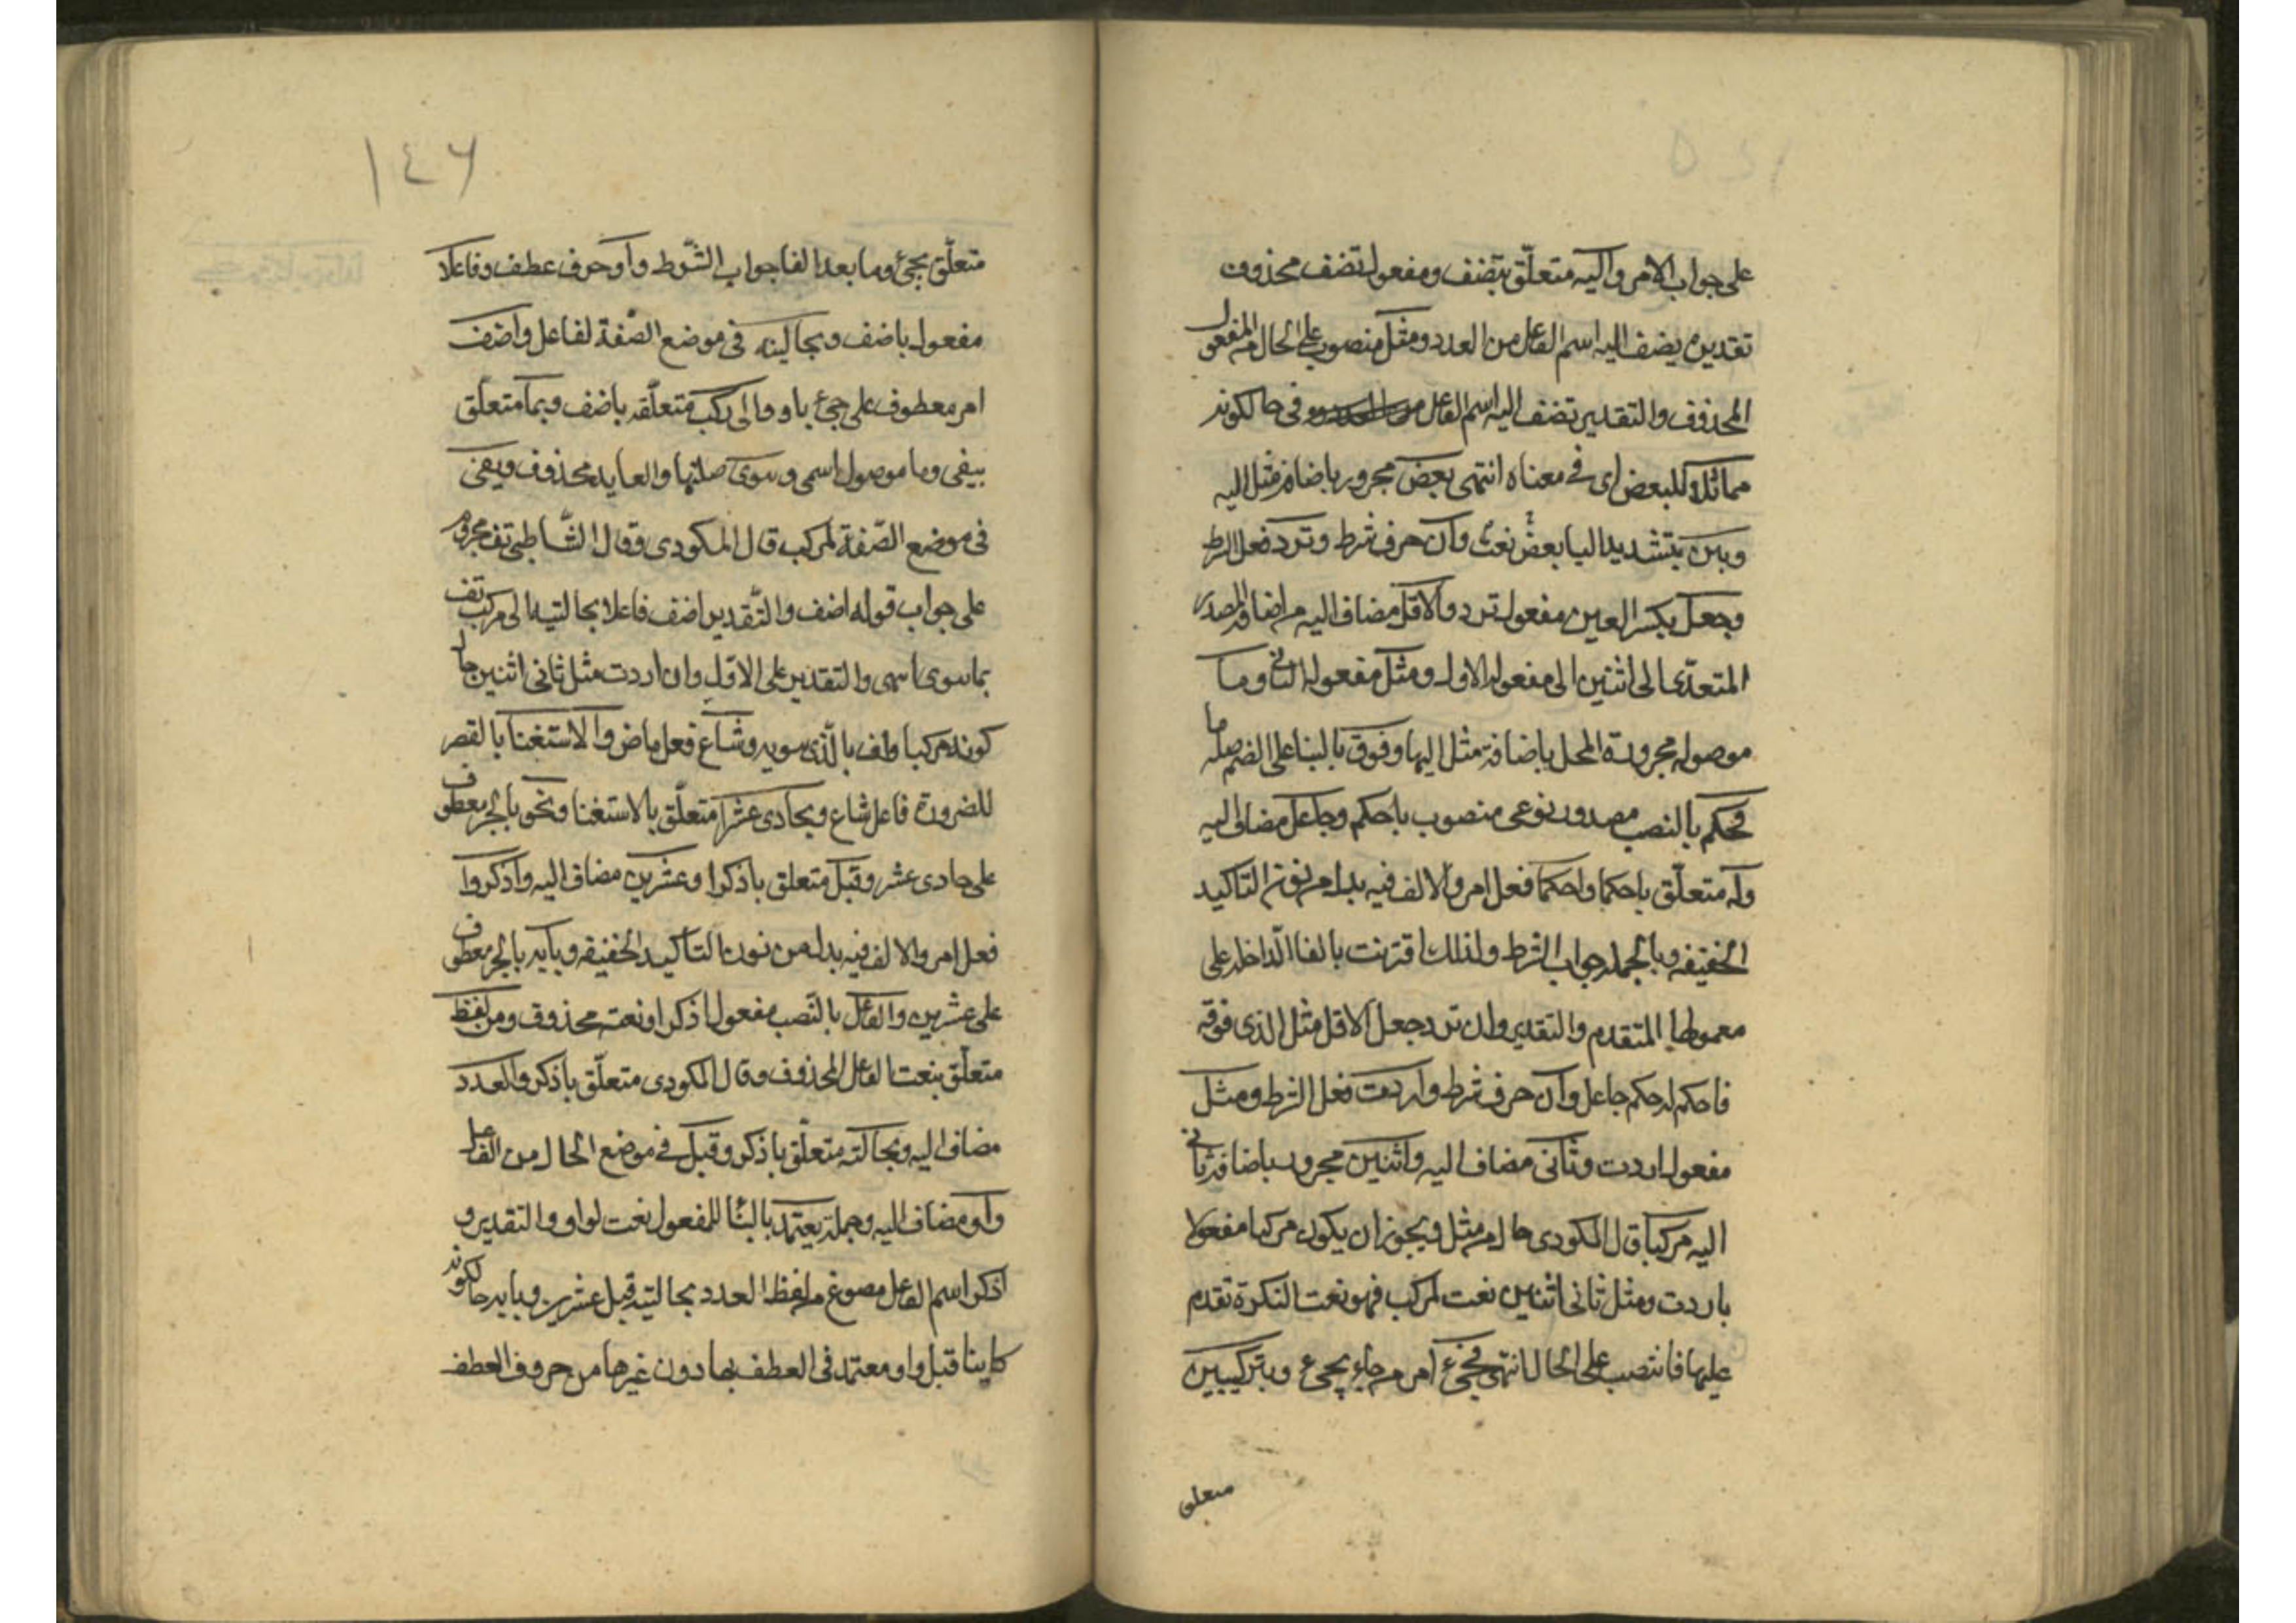 على جواب الامر واليه متعلّق بتضف ومفعول تضف محذوف
تقديره يضف اليه اسم الفاعل من العدد ومثل منصوب على الحال من المفعول
المحذوف والتقدير تضف اليه اسم الفاعل في حال كونه
مماثلا للبعض اى في معناه انتهى بعض مجرور باضافة مثل اليه
وبين بتشديد اليا بعض نعت وان حرف شرط وترد فعل الشرط
وجعل بكسر العين مفعول ترد والاقل مضاف اليه من اضافة المصدر
المتعدّى الى اثنين الى مفعوله الاول ومثل مفعوله الثاني وما
موصولة مجرورة المحل باضافة مثل اليها وفوق بالبنا على الضم صلة ما
فحكم بالنصب مصدر نوعى منصوب باحكم وجاعل مضاف اليه
وله متعلّق باحكما واحكما فعل امر والالف فيه بدل من نون التاكيد
الخفيفه وبالجمله جواب الشرط ولذلك اقترنت بالفا الداخلة على
معمولها المتقدم والتقدير وان ترد جعل الاقل مثل الذى فوقه
فاحكم له حكم جاعل وان حرف شرط واردت فعل الشرط ومثل
مفعول اردت وثانى مضاف اليه واثنين مجرور باضافة ثاني
اليه مركبا قال المكودى حال من مثل ويجوز ان يكون مركبا مفعولا
باردت ومثل ثانى اثنين نعت لمركب فهو نعت النكرة تقدم
عليها فانتصب على الحال انتهى فجئ امر من جاء يجئ وبتركيبين
متعلق
١٤٦
متعلّق بجئ وما بعد الفا جواب الشّرط واو حرف عطف وفاعلا
مفعول باضف وبحالتيه فى موضع الصّفة لفاعل واضف
امر معطوف على جئ باو والى مركب متعلّقه باضف وبما متعلّق
بيفى وما موصول اسمى وسوى صلتها والعايد محذوف ويفى
فى موضع الصّفة لمركب قال المكودى وقال الشّاطبى تف مجزوم
على جواب قوله اضف والتّقدير اضف فاعلا بحالتيه الى مركب تف
بما سوى اسمى والتقدير على الاوّل وان اردت مثل ثانى اثنين حال
كونه مركبا واف بالّذى سويه وشاع فعل ماض والاستغنا بالقصر
للضرورة فاعل شاع وبحادى عشرا متعلّق بالاستغنا ونحو بالجر معطوف
على حادى عشر وقبل متعلق باذكرا وعشرين مضاف اليه واذكروا
فعل امر والالف فيه بدل من نون التاكيد الخفيفه وبابه بالجر معطوف
على عشرين والفاعل بالنّصب مفعول اذكر او نعته محذوف ومن لفظ
متعلّق بنعت الفاعل المحذوف وقال المكودى متعلّق باذكر والعدد
مضاف اليه وبحالته متعلّق باذكر وقبل في موضع الحال من الفاعل
واو مضاف اليه وجملة يعتمد بالبنا للمفعول نعت لواو والتقدير و
اذكر اسم الفاعل مصوغ من لفظ العدد بحالتيه قبل عشرين وبابه حال كونه
كاينا قبل واو معتمد فى العطف بها دون غيرها من حروف العطف